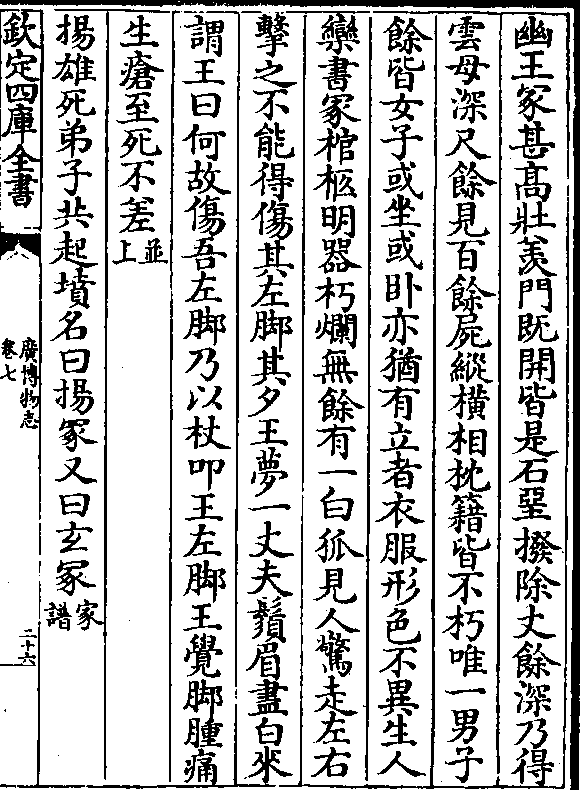 幽王冢甚髙壯羡門既開皆是石堊撥除丈餘深乃得
雲母深尺餘見百餘屍縱橫相枕籍皆不朽唯一男子
餘皆女子或坐或卧亦猶有立者衣服形色不異生人
欒書冢棺柩明器朽爛無餘有一白狐見人驚走左右
擊之不能得傷其左脚其夕王夢一丈夫鬚眉盡白來
謂王曰何故傷吾左脚乃以杖叩王左脚王覺脚腫痛
生瘡至死不差並上
揚雄死弟子共起墳名曰揚冢又曰玄冢家譜
欽定四庫全書
廣博物志
卷七
二十六